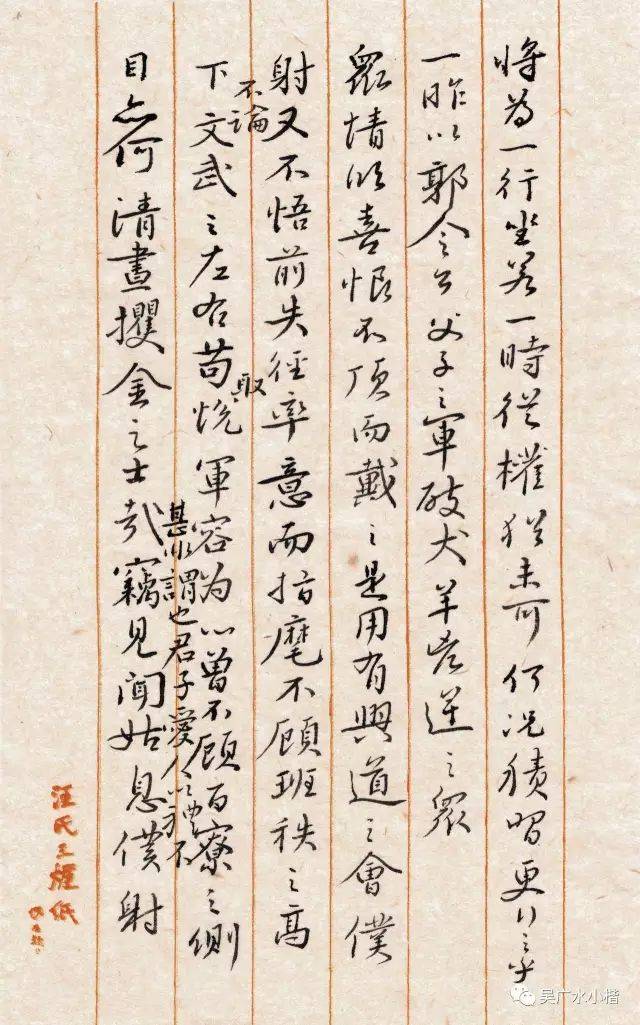 將為一行坐若一時從權猶未可何況積習更行之乎
一昨以郭令公父子之軍破犬羊凶逆之眾
眾情欣喜恨不頂而戴之是用有興道之會僕
射又不悟前失徑率意而指麾不顧班秩之高
不論
下文武之左右苟悅軍容為心曾不顧百寮之側
取
甚非謂也君子愛人以禮不
目亦何清晝攫金之士哉竊見聞姑息僕射
吴广水小楷